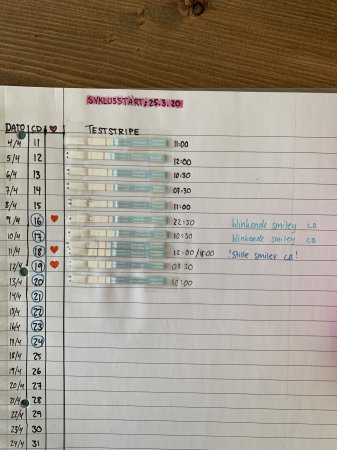 SYKLUSSTART: 25.3.20
DATO CD ♥ TESTSTRIPE
4/4 11 11:00
5/4 12 12:00
6/4 13 10:30
7/4 14 07:30
8/4 15 11:00
9/4 16 ♥ 22:30 blinkende smiley CB
10/4 17 10:30 blinkende smiley CB
11/4 18 ♥ 12:00/18:00 'Stille smiley CB!
12/4 19 ♥ 08:30
13/4 20 10:00
14/4 21
15/4 22
16/4 23
17/4 24
18/4 25
19/4 26
20/4 27
21/4 28
22/4 29
23/4 30
24/4 31